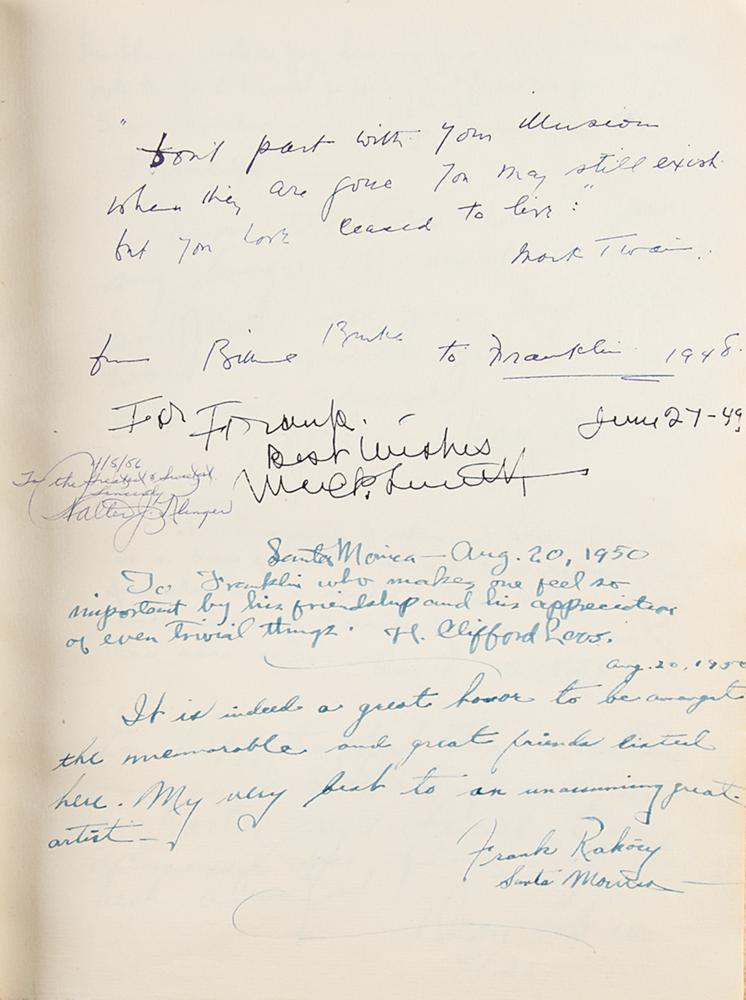 "Don't part with your illusions
when they are gone you may still exist
but you have ceased to live:"
Mark Twain.
from Billie Burke to Franklin 1948.
For Frank.
June 27-49
Best Wishes
4/5/56
To the greatest & sweetest
Sincerely
Walter J. Klinger
Santa Monica — Aug. 20, 1950
To Franklin who makes one feel so
important by his friendship and his appreciation
of even trivial things. H. Clifford Loos.
Aug. 20, 1950
It is indeed a great honor to be amongst
the memorable and great friends listed
here. My very best to an unassuming great
artist —
Frank Rakosy
Santa Monica